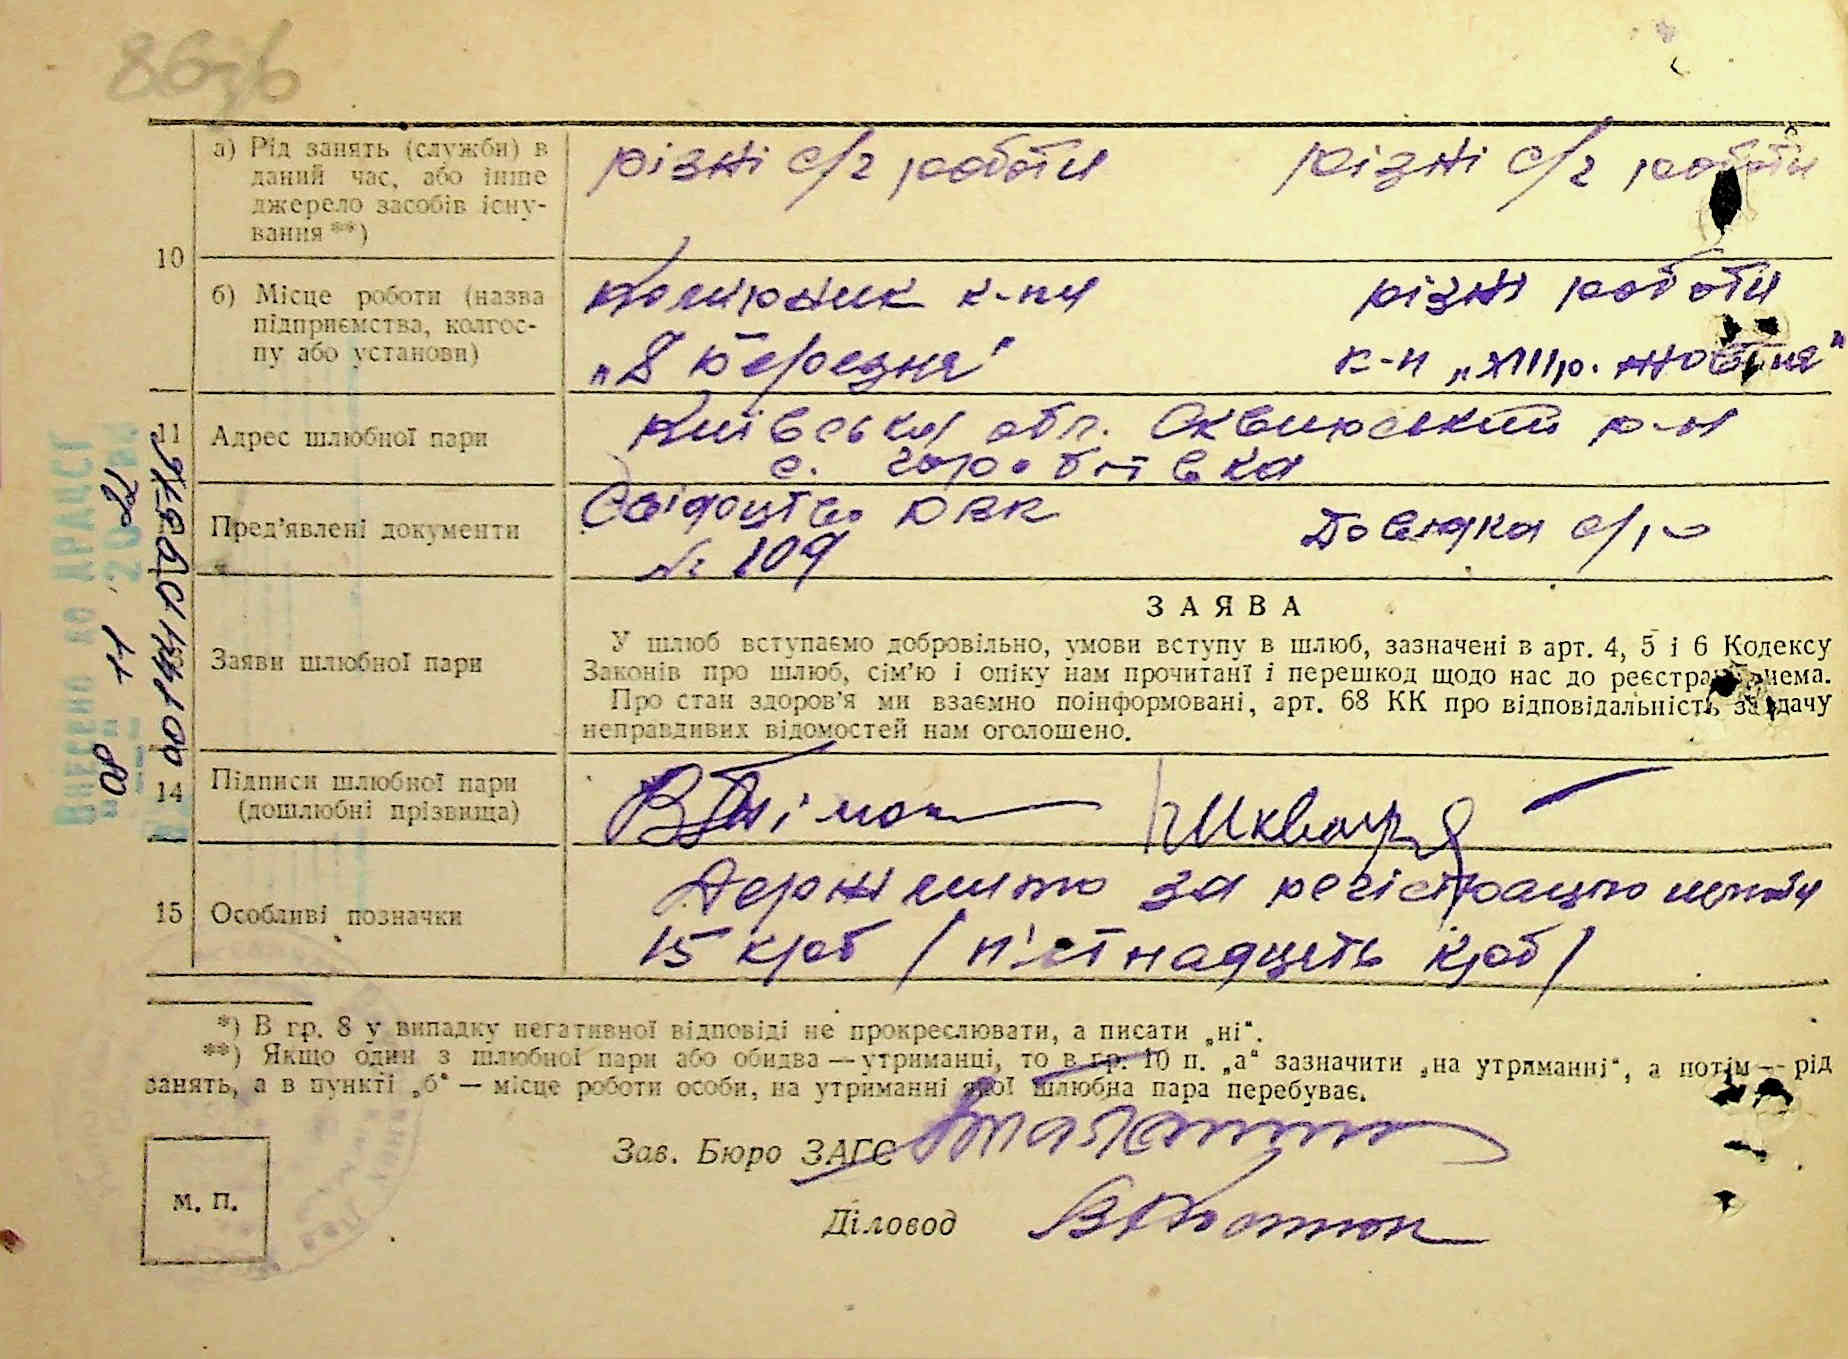 а) Рід занять (служби) в даний час, або інше джерело засобів існування **)
різні с/г роботи різні с/г роботи
10
б) Місце роботи (назва підприємства, колгоспу або установи)
к-пи різні роботи
„8 березня" к-п „XIII р. Жовтня"
11 Адрес шлюбної пари
Київська обл. Сквирський р-н
с.
Пред'явлені документи
Свідоцтво Довідка с/р
№ 109
Заяви шлюбної пари
ЗАЯВА
У шлюб вступаємо добровільно, умови вступу в шлюб, зазначені в арт. 4, 5 і 6 Кодексу
Законів про шлюб, сім'ю і опіку нам прочитані і перешкод щодо нас до реєстрації нема.
Про стан здоров'я ми взаємно поінформовані, арт. 68 КК про відповідальність за дачу
неправдивих відомостей нам оголошено.
14 Підписи шлюбної пари (дошлюбні прізвища)
15 Особливі позначки
Держмито за регістрацію шлюби
15 крб / п'ятнадцять крб /
*) В гр. 8 у випадку негативної відповіді не прокреслювати, а писати „ні".
**) Якщо один з шлюбної пари або обидва — утриманці, то в гр. 10 п. „а" зазначити „на утриманні", а потім — рід
занять, а в пункті „б" — місце роботи особи, на утриманні якої шлюбна пара перебуває.
Зав. Бюро ЗАГС
Діловод
М. П.
Внесено до ДРАЦСГ
08 11 22